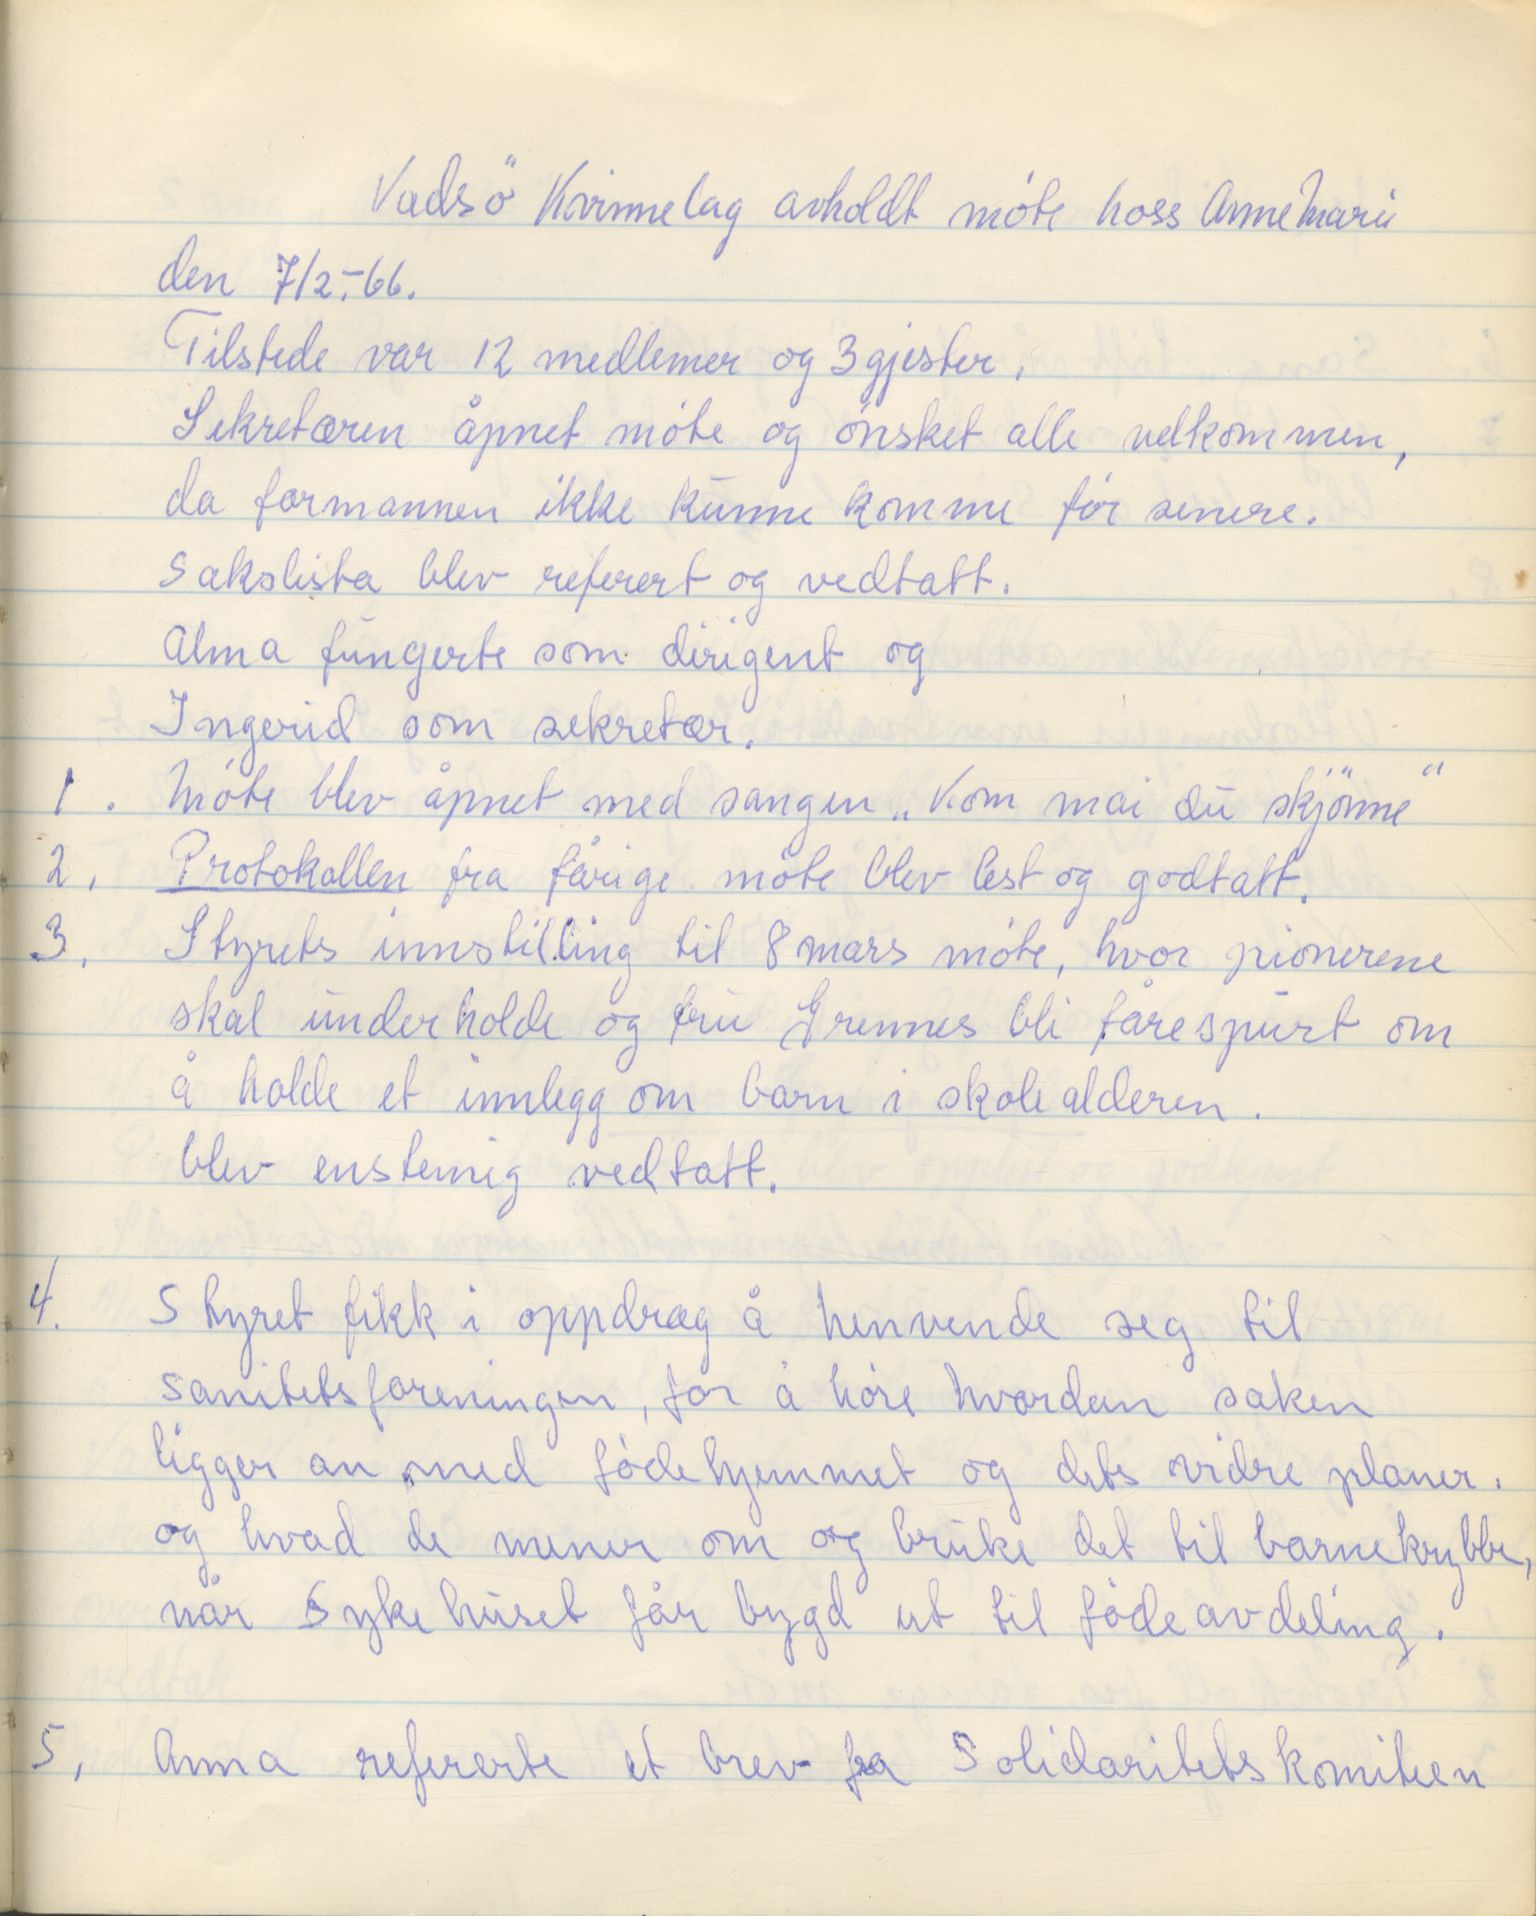 Vadsö Kvinnelag avholdt móte hoss Anne Marie
den 7/2.-66.
Tilstede var 12 medlemer og 3 gjester.
Sekretæren åpnet móte og ónsket alle velkommen,
da formannen ikke kunne komme fór senere.
Sakslista blev referert og vedtatt.
Alma fungerte som dirigent og
Ingerid som sekretær.
1. Móte blev åpnet med sangen „Kom mai du skjönne"
2. Protokollen fra fårige móte blev lest og godtatt.
3. Styrets innstilling til 8 mars móte, hvor pionerene
skal underholde og fru Grennes bli fårespurt om
å holde et innlegg om barn i skolealderen.
blev enstemig vedtatt.
4. Styret fikk i oppdrag å henvende seg til
sanitetsforeningen, for å hóre hvordan saken
ligger an med fódehjemmet og dets vidre planer.
og hvad de mener om og bruke det til barnekrybbe,
når Sykehuset får bygd ut til fódeavdeling.
5. Anna refererte et brev fra Solidaritetskomiteen